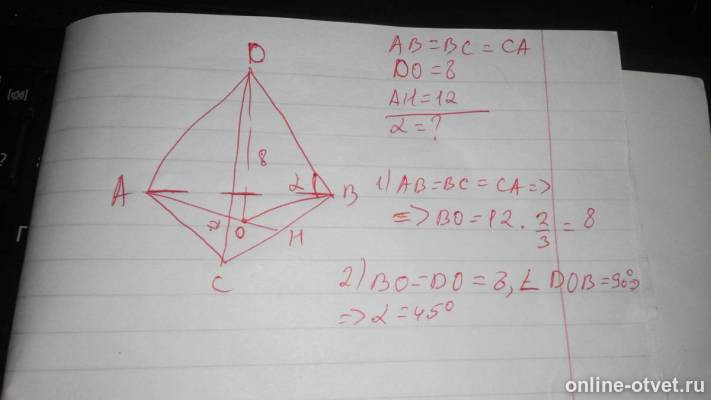 AB = BC = CA
DO = 8
AH = 12
α = ?
1) AB = BC = CA =>
=> BO = 12 · 2/3 = 8
2) BO = DO = 8, ∠ DOB = 90° =>
=> α = 45°
D
8
A
α
B
O
H
C
online-otvet.ru